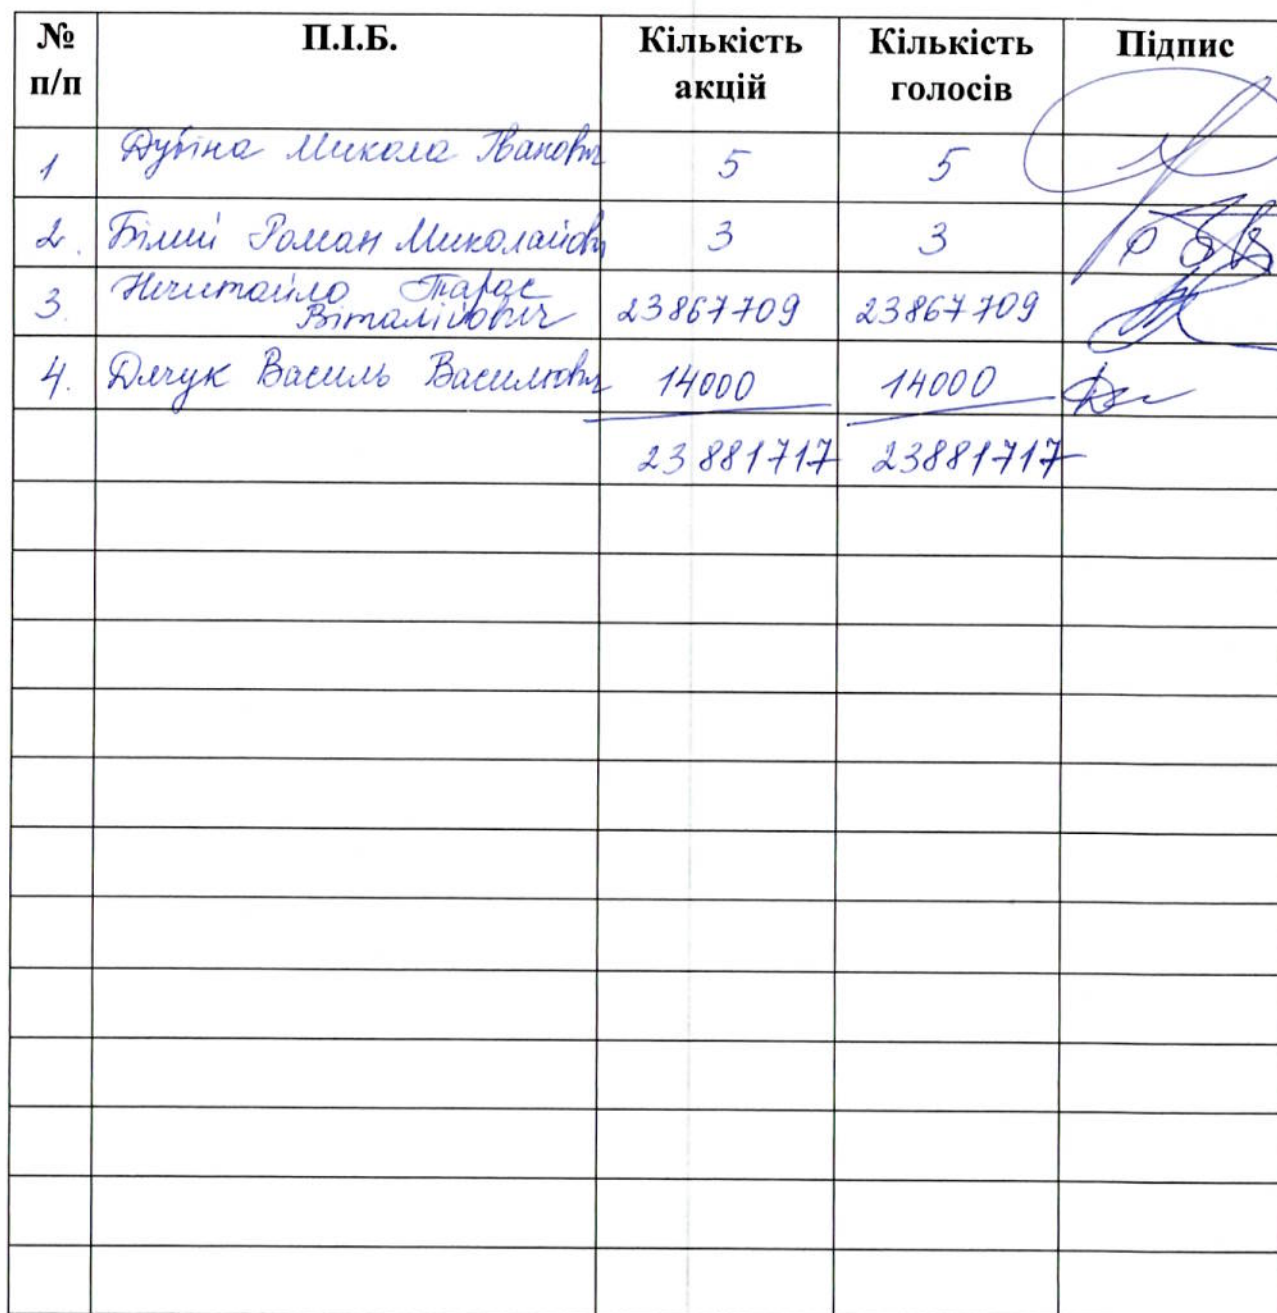 № п/п П.І.Б. Кількість акцій Кількість голосів Підпис
1 Дубіна Микола Іванович 5 5
2. Білий Роман Миколайович 3 3
3. Нечитайло Тарас Віталійович 23867709 23867709
4. Дячук Василь Васильович 14000 14000
23881717 23881717